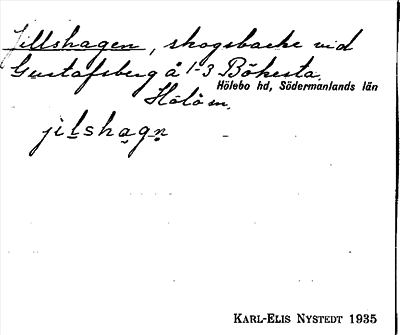 Jillshagen, skogsbacke vid
Gustafsberg å 1-3 Bökesta.
Hölebo hd, Södermanlands län
Hölö sn.
jilshagn
KARL-ELIS NYSTEDT 1935